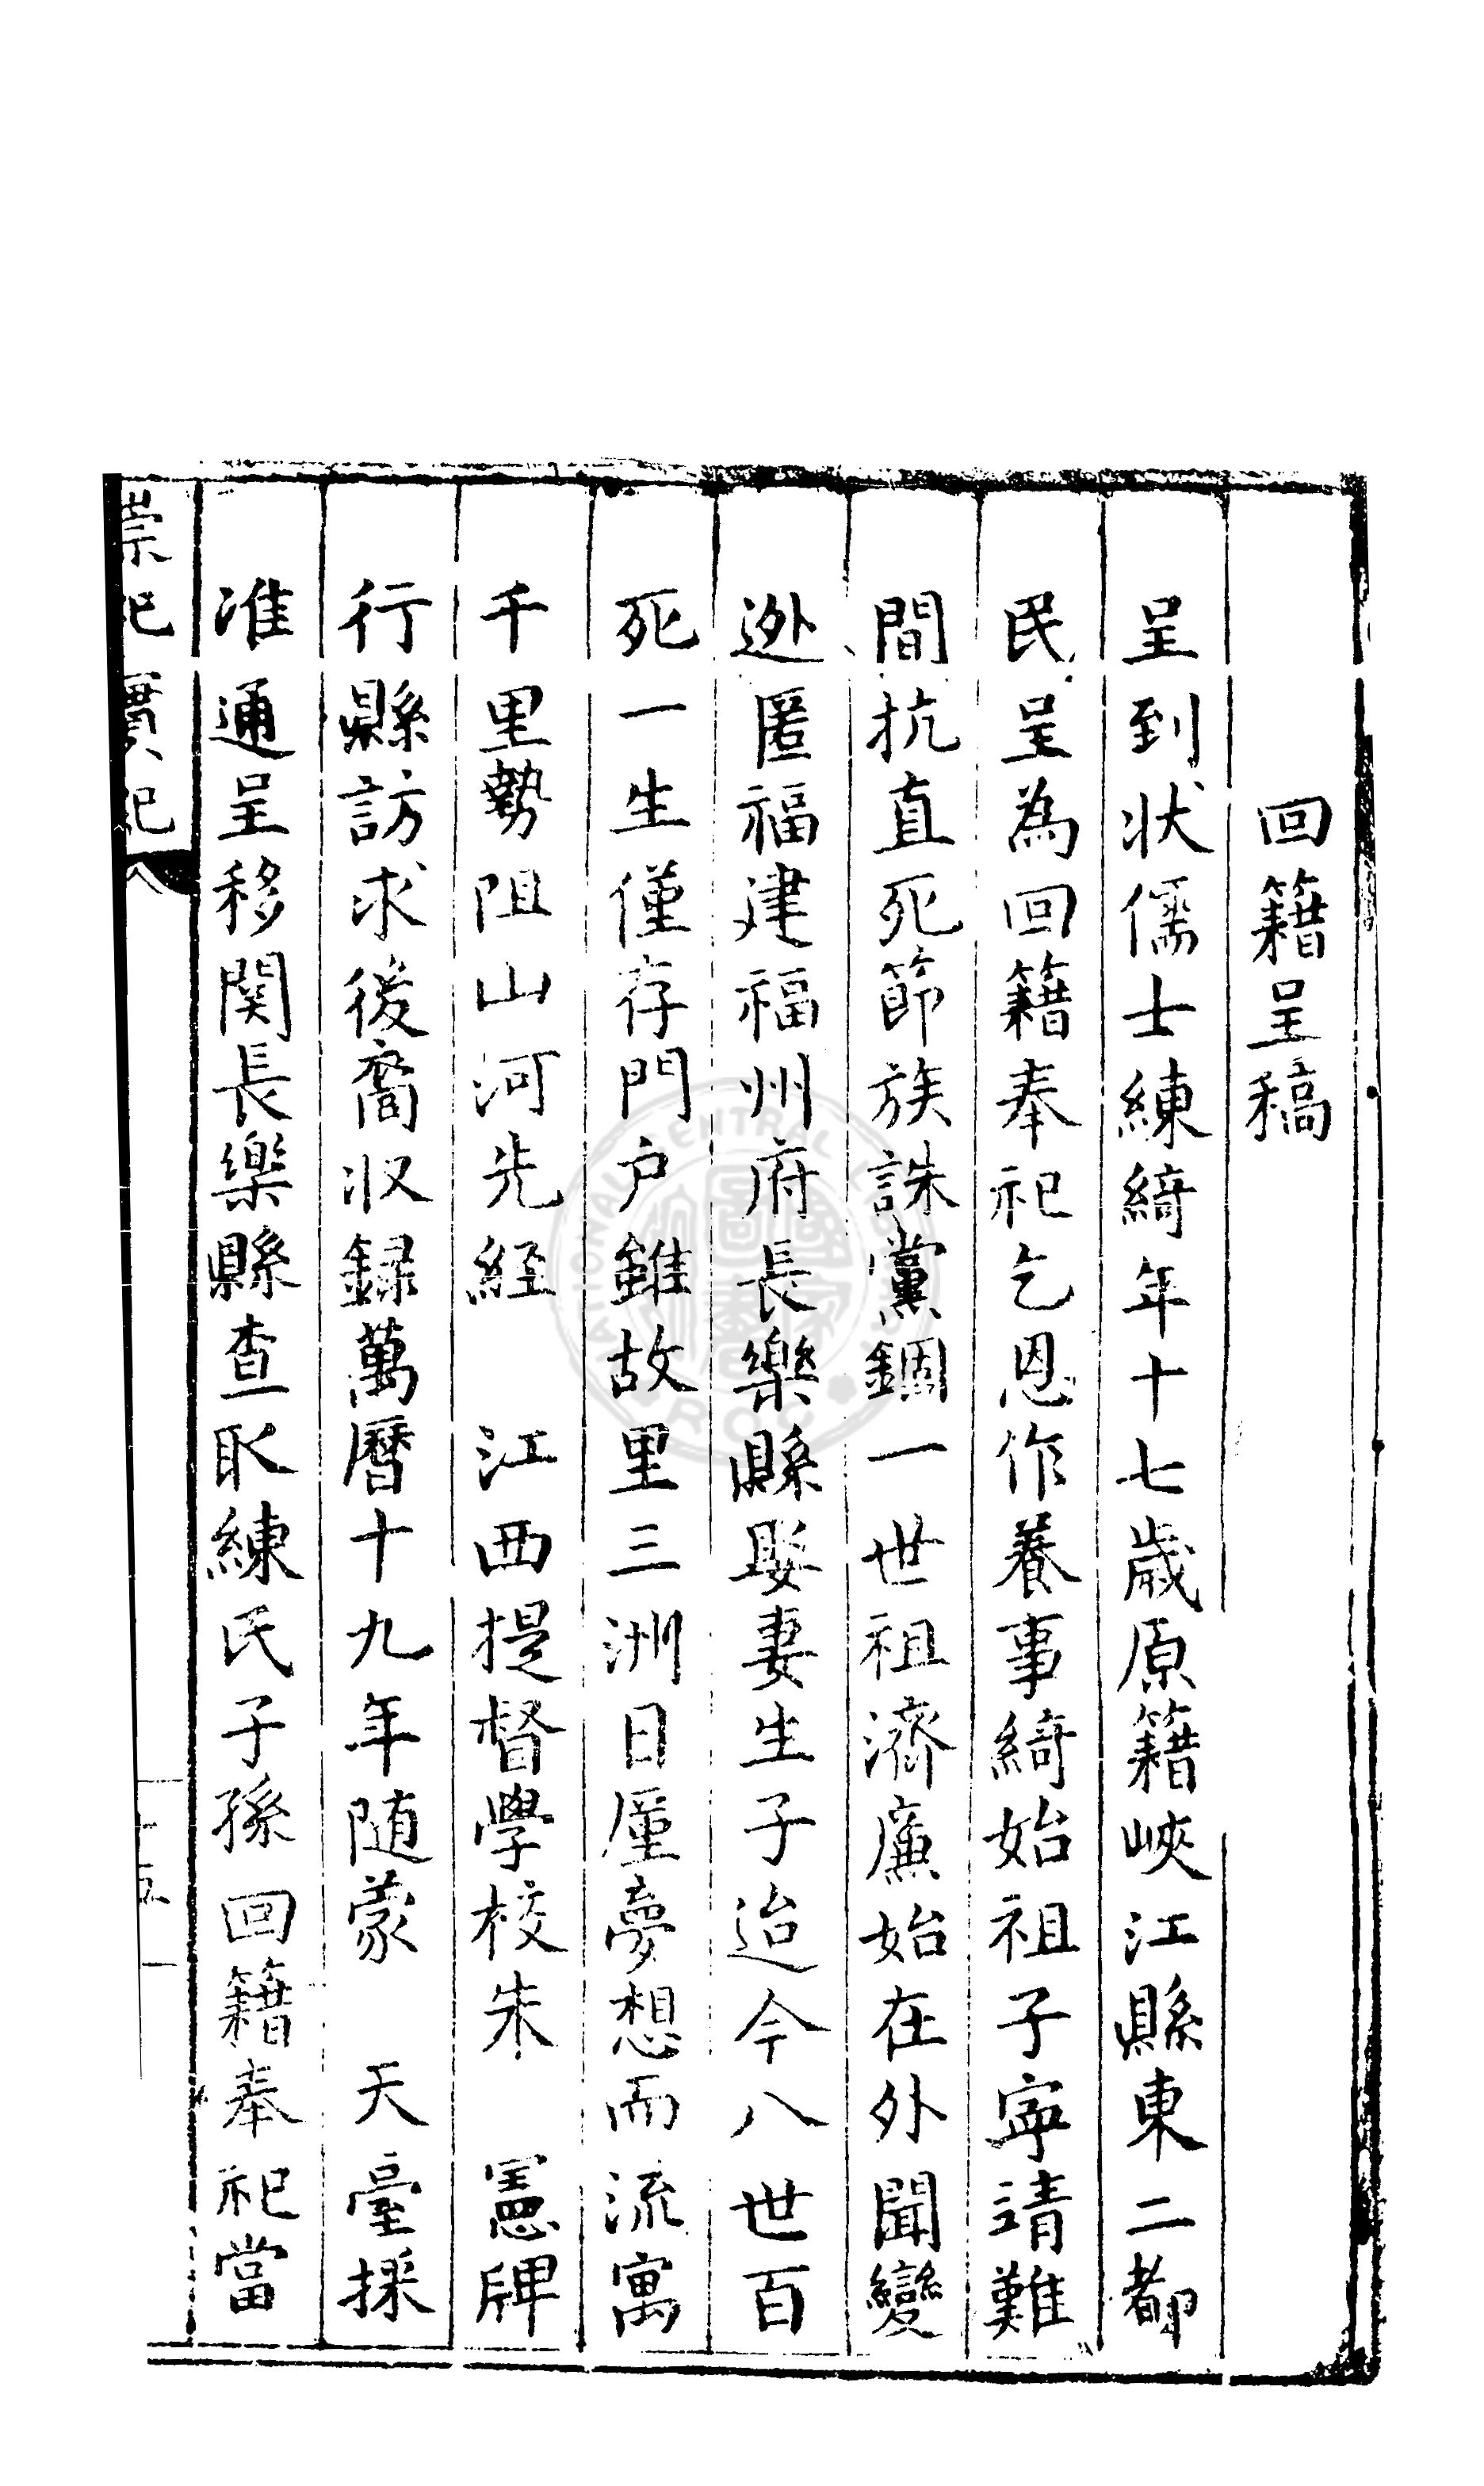 回籍呈稿
呈到狀儒士練綺年十七歲原籍峽江縣東二都
民呈為回籍奉祀乞恩作養事綺始祖子寧靖難
間抗直死節族誅黨錮一世祖濟廉始在外聞變
逊匿福建福州府長樂縣娶妻生子迨今八世百
死一生僅存門户雖故里三洲日廑夢想而流寓
千里勢阻山河先經 江西提督學校朱 憲牌
行縣訪求後裔収録萬曆十九年随蒙 天臺採
准通呈移関長樂縣查取練氏子孫回籍奉祀當
崇祀實紀 八 十五
NATIONAL CENTRAL L
R.O.C